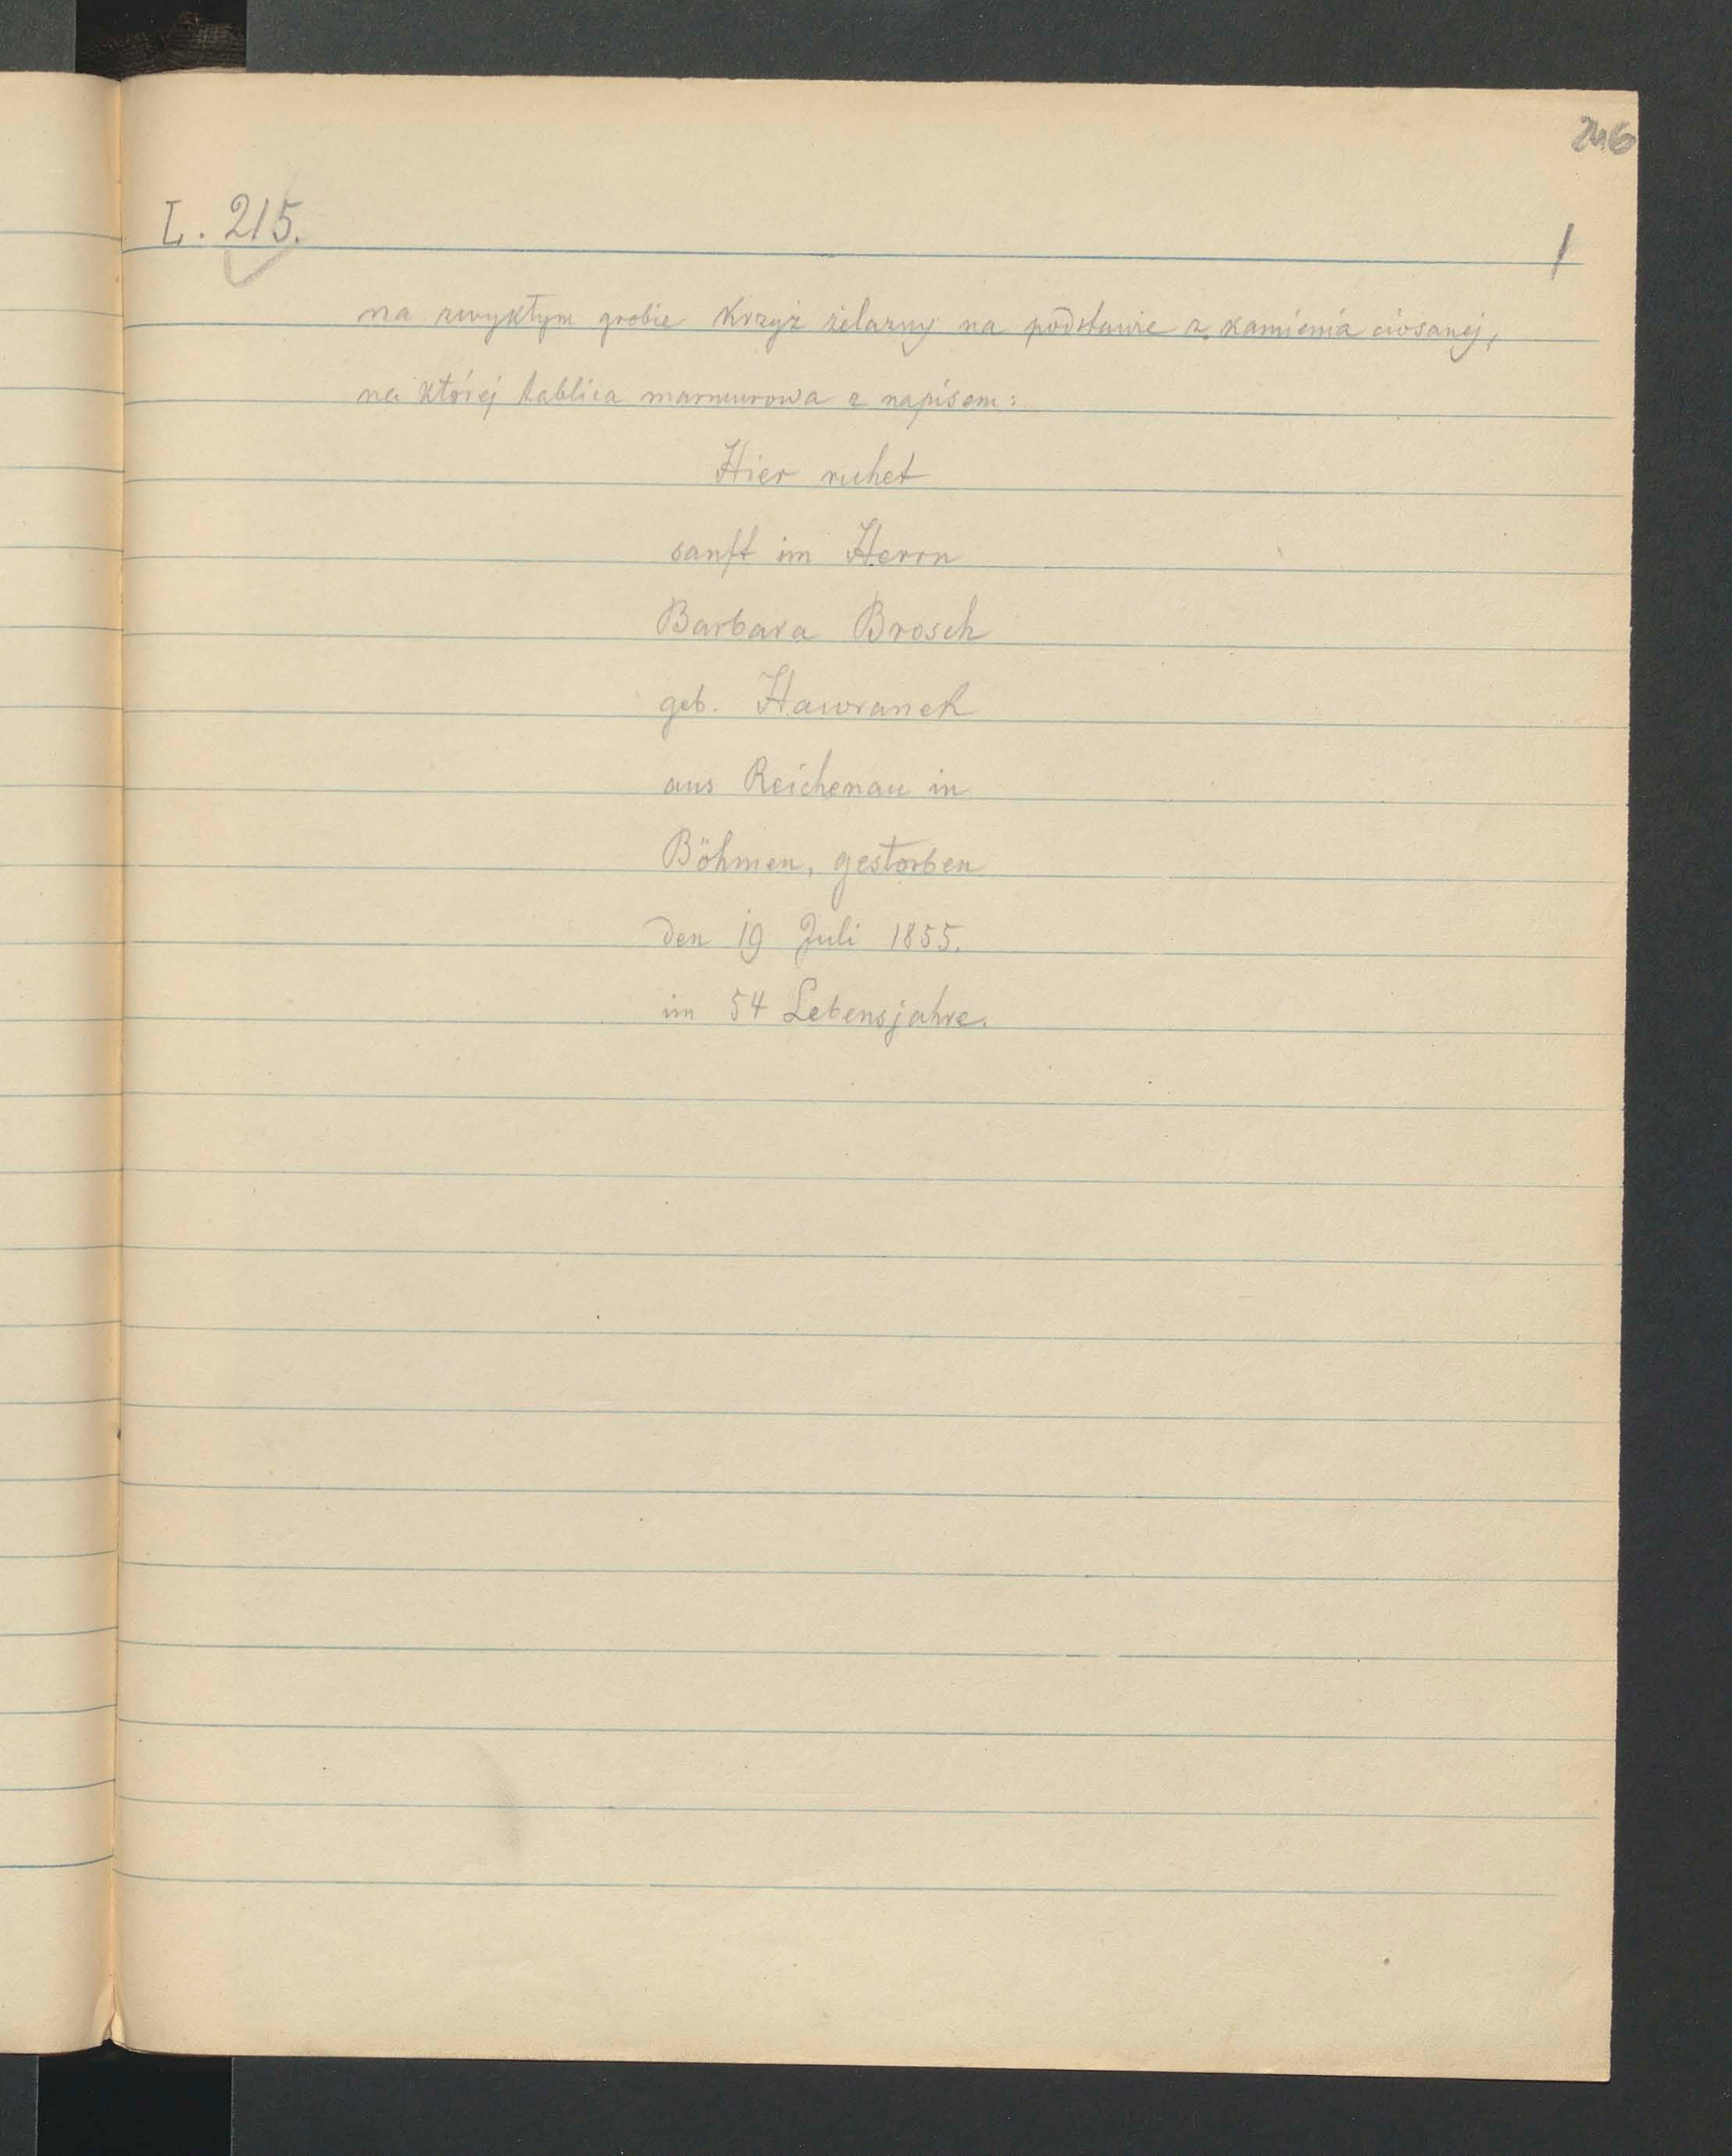 246
L. 215.
1
na zwykłym grobie krzyż żelazny na podstawie z kamienia ciosanej,
na której tablica marmurowa z napisem:
Hier ruhet
sanft im Herrn
Barbara Brosch
geb. Hawranek
aus Reichenau in
Böhmen, gestorben
den 19 Juli 1855.
im 54 Lebensjahre.